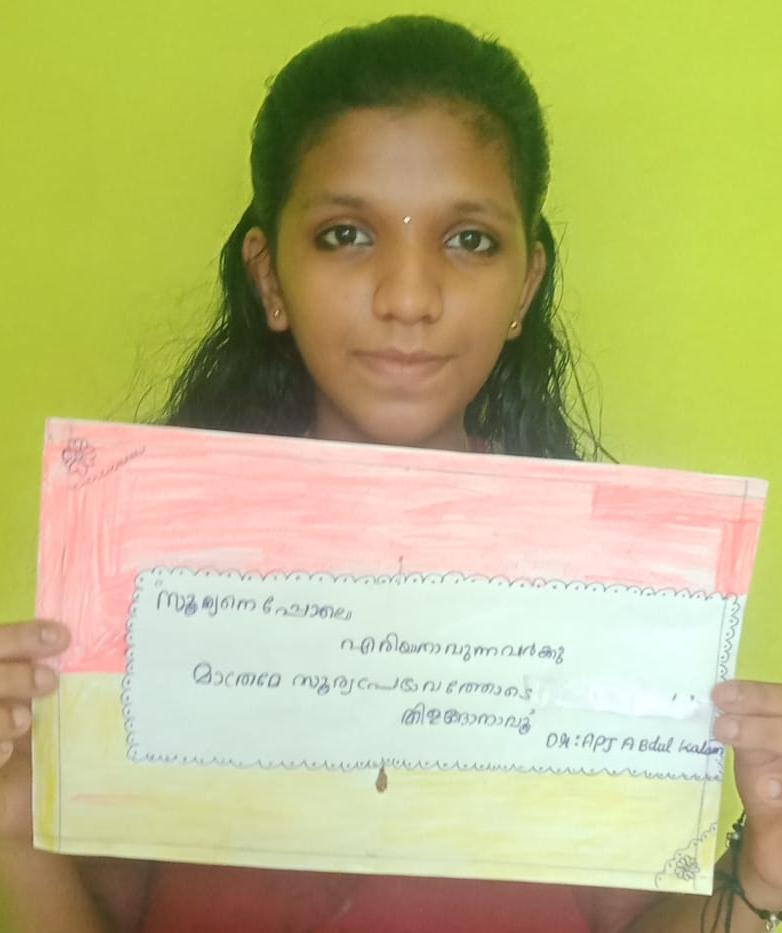 സൂര്യനെ പ്പോലെ
എരിയനാവുന്നവർക്കു
മാത്രമേ സൂര്യപ്രഭാവത്തോടെ
തിളങ്ങാനാവൂ
DR: APJ ABdul Kalam